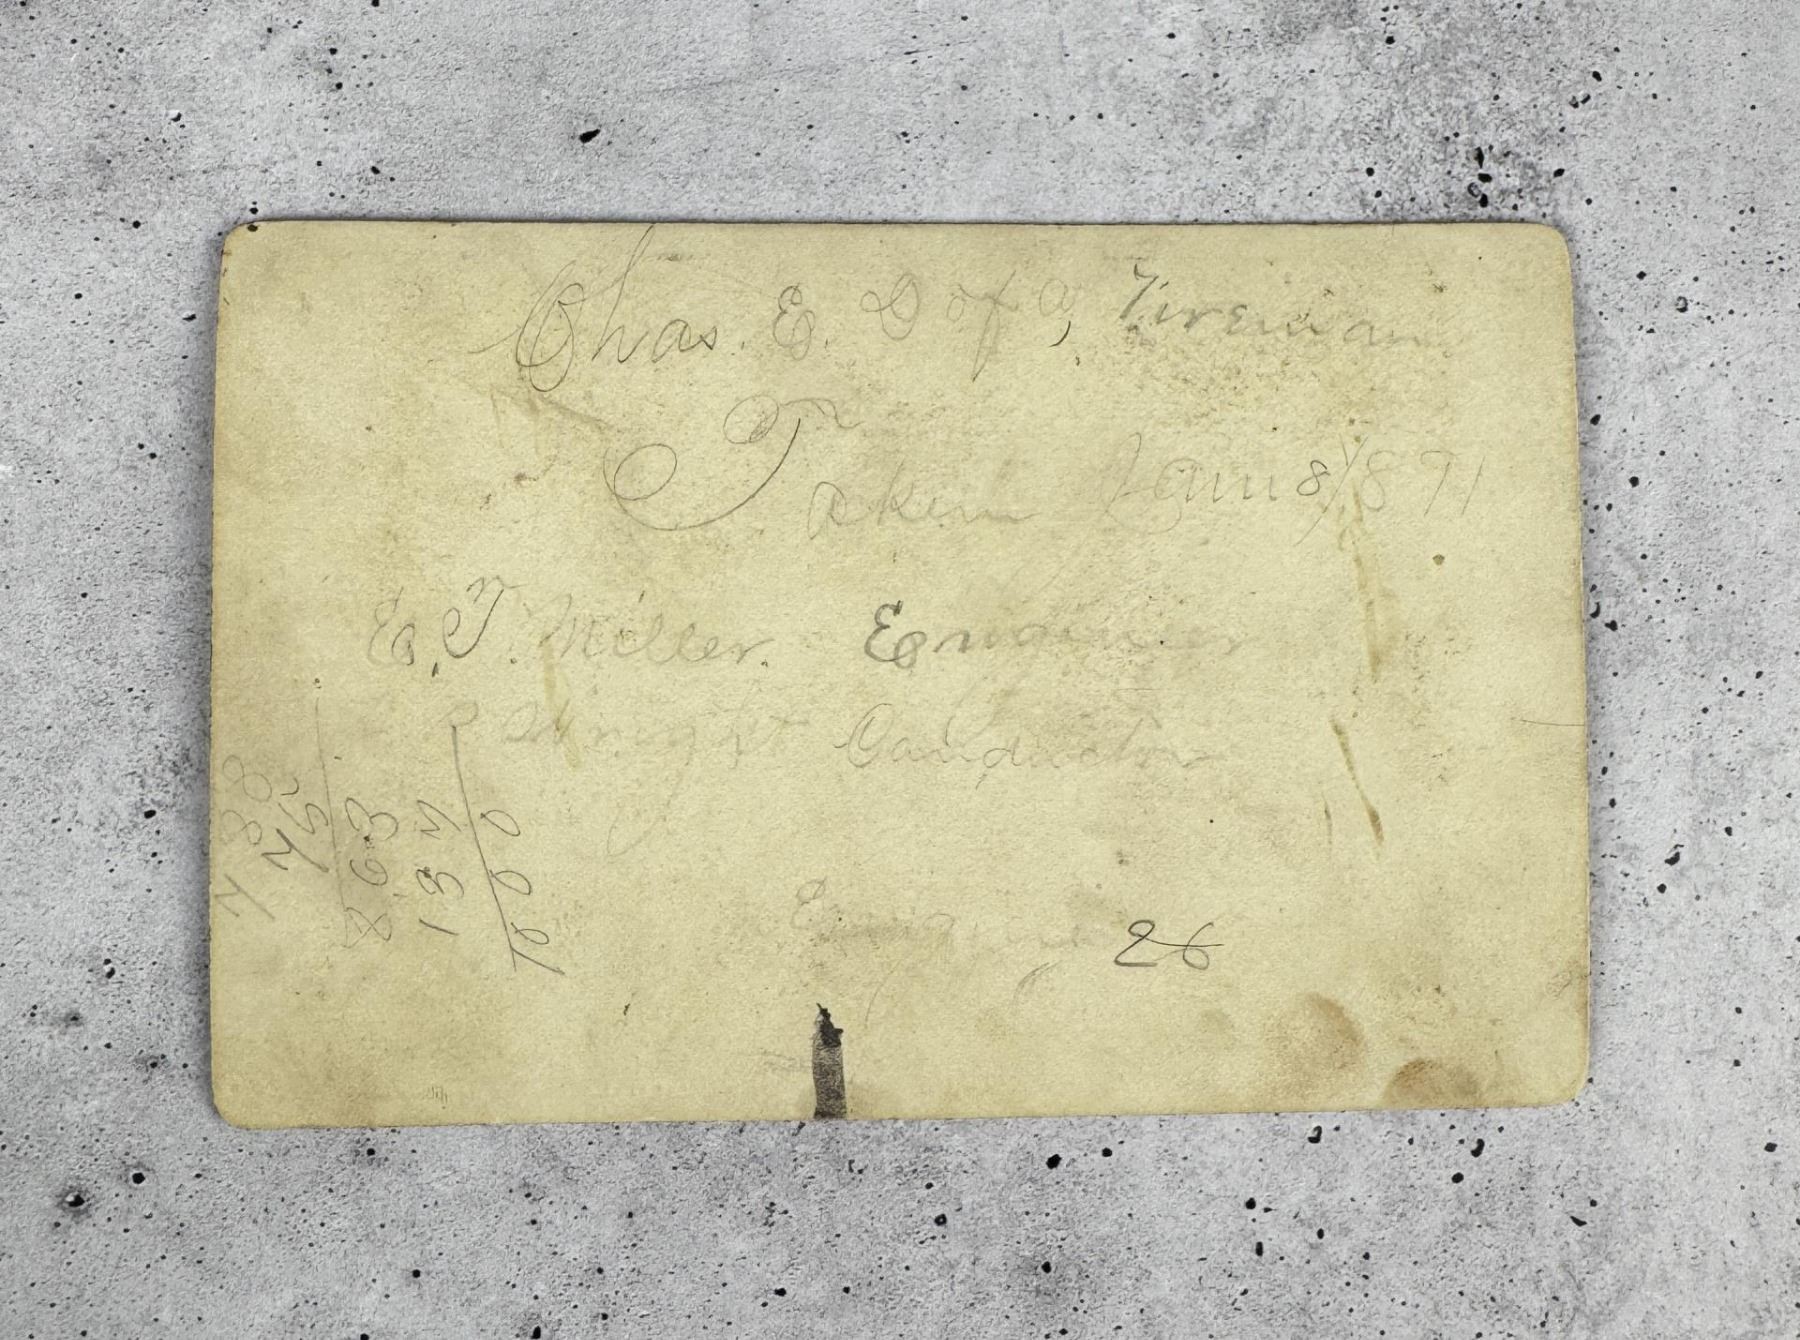 Chas. E. D of a, Fireman
Taken Jan 8/1891
E. T. Miller. Engineer
Conductor
Engine 26
788
75
863
134
1000